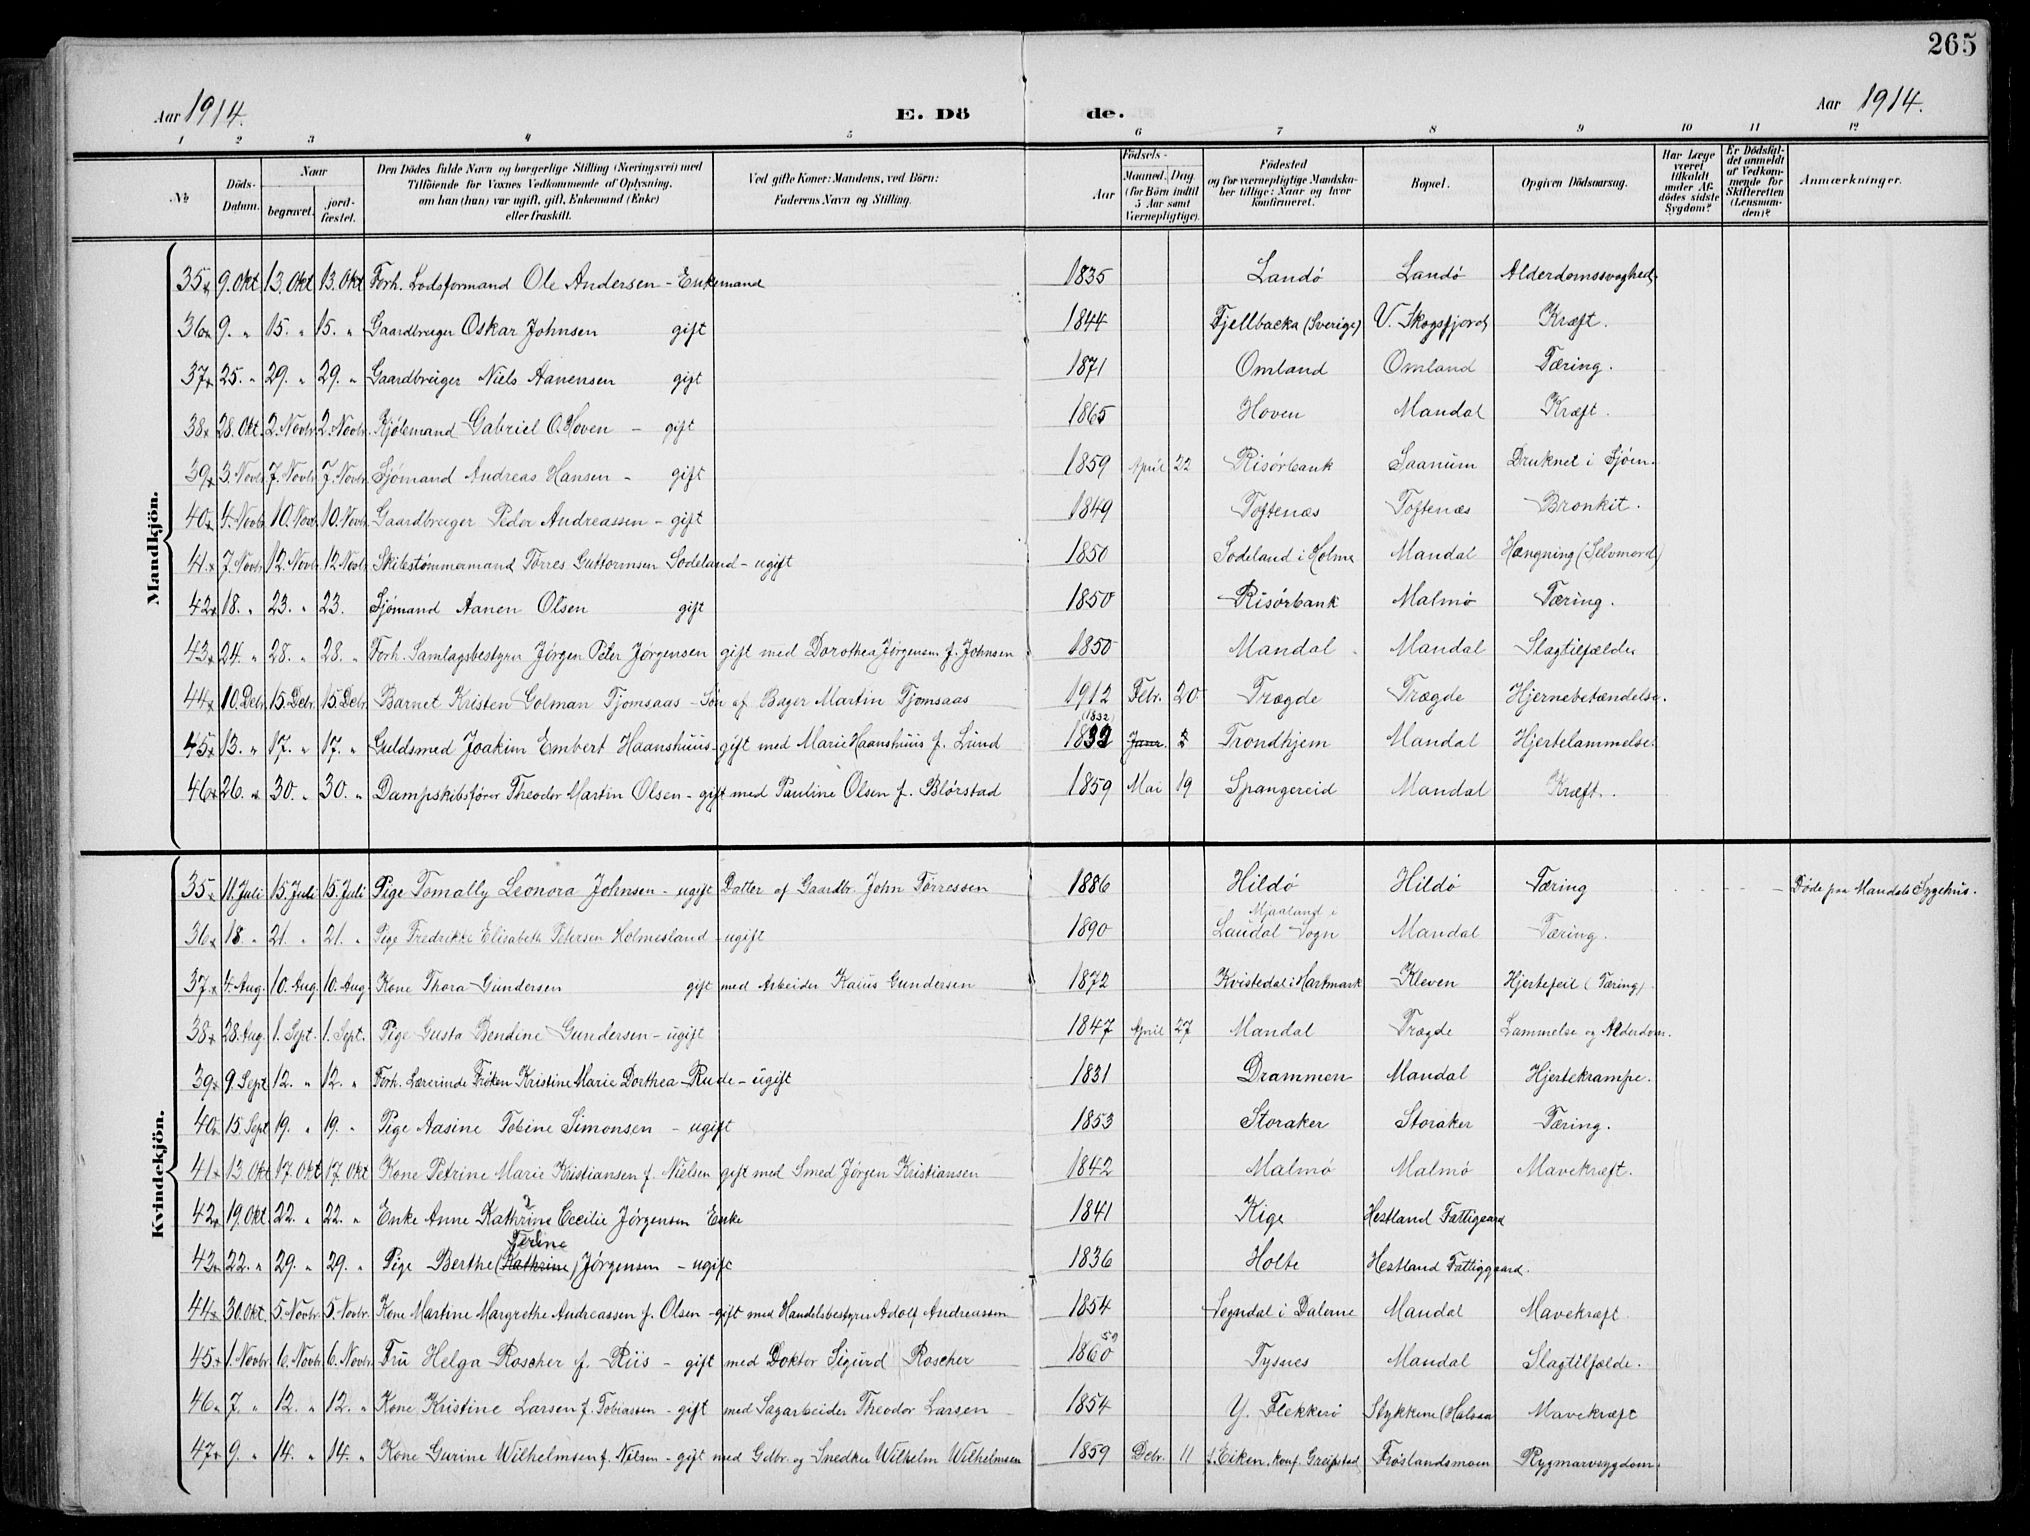 265
Aar 1914. E. Dö de. Aar 1914.
1 2 3 4 5 6 7 8 9 10 11 12
№ Döds-Datum. Naar begravet. jord-fæstet. Den Dödes fulde Navn og borgerlige Stilling (Næringsvei) med Tilföiende for Voxnes Vedkommende af Oplysning, om han (hun) var ugift, gift, Enkemand (Enke) eller fraskilt. Ved gifte Koner: Mandens, ved Börn: Faderens Navn og Stilling. Födsels- Aar Maaned. Dag. (for Börn indtil 5 Aar samt Værnepligtige). Födested og for værnepligtige Mandskaber tillige: Naar og hvor konfirmeret. Bopæl. Opgiven Dödsaarsag. Har Læge været tilkaldt under Afdödes sidste Sygdom? Er Dödsfaldet anmeldt af Vedkommende for Skifteretten (Lensmanden)? Anmærkninger.
Mandkjön.
35 x 9. Okt. 13. Okt 13. Okt Forh. Lodsformand Ole Andersen - Enkemand 1835 Landø Landø Alderdomssvaghed.
36 x 9. " 15. " 15. " Gaardbruger Oskar Johnsen gift 1844 Fjellbacka (Sverige) V. Skogsfjord Kræft.
37 x 25. " 29. " 29. " Gaardbruger Niels Aanensen gift 1871 Omland Omland Tæring.
38 x 28. Okt. 2. Novbr 2. Novbr. Kjølemand Gabriel O. Hoven - gift 1865 Hoven Mandal Kræft.
39 x 3. Novbr 7. Novbr 7. Novbr Sjømand Andreas Hansen - gift 1859 April 22 Risørbank Saanum Druknet i Sjøen.
40 x 4. Novbr 10. Novbr. 10. Novbr. Gaardbruger Peder Andreassen - gift 1849 Toftenæs Toftenæs Bronkit.
41. x 7. Novbr. 12. Novbr. 12. Novbr. Skibstømmermand Tørres Guttormsen Sodeland - ugift 1850 Sodeland i Holme Mandal Hængning (Selvmord)
42 x 18. " 23. " 23. Sjømand Aanen Olsen gift 1850 Risørbank Malmø Tæring.
43 x 24. " 28. " 28. " Forh. Samlagsbestyrer Jørgen Peter Jørgensen gift med Dorothea Jørgensen f. Johnsen 1850 Mandal Mandal Slagtilfælde
44 x 10. Debr. 15. Debr. 15. Debr. Barnet Kristen Colman Tjomsaas - Søn af Bager Martin Tjomsaas 1912 Febr. 20 Trægde Trægde Hjernebetændelse.
1832
45 x 13. " 17. " 17. " Guldsmed Joakim Embert Haanshuus - gift med Marie Haanshuus f. Lund 1832 Janr. Trondhjem Mandal Hjertelammelse.
46 x 26. " 30. " 30. " Dampskibsfører Theodor Martin Olsen - gift med Pauline Olsen f. Blørstad 1859 Mai 19 Spangereid Mandal Kræft.
Kvindekjön.
35 x 11. Juli 15. Juli 15. Juli Pige Tomally Leonora Johnsen - ugift Datter af Gaardbr. John Tørressen 1886 Hildø Hildø Tæring Døde paa Mandals Sygehus.
Mjaaland i
36 x 18. " 21. " 21. " Pige Fredrikke Elisabeth Petersen Holmesland - ugift 1890 Laudal Sogn Mandal Tæring.
37 x 4. Aug. 10. Aug. 10. Aug. Kone Thora Gundersen gift med Arbeider Kaius Gundersen 1872 Kvistedal i Hartmark Kleven Hjertefeil (Tæring)
38 x 28. Aug. 1. Sept. 1. Sept. Pige Gusta Bendine Gundersen - ugift 1847 April 27 Mandal Trægde Lammelse og Alderdom.
39 x 9. Sept 12. " 12. " Forh. Lærerinde Frøken Kristine Marie Dorthea Rude - ugift 1831 Drammen Mandal Hjertekrampe.
40 x 15. Sept 19. " 19. " Pige Aasine Tobine Simonsen - ugift 1853 Storaker Storaker Tæring.
41 x 13. Okt 17. Okt 17. Okt Kone Petrine Marie Kristiansen f. Nielsen gift med Smed Jørgen Kristiansen 1842 Malmø Malmø Mavekræft.
42 x 19. Okt. 22. " 22. " Enke Anne Kathrine Cecilie Jørgensen Enke 1841 Kige Hestland Fattiggaard
Terine
43 x 22. " 29. " 29. " Pige Berthe (Kathrine) Jørgensen - ugift 1836 Holte Hestland Fattiggaard.
44 x 30. Okt. 5. Novbr. 5. Novbr. Kone Martine Margrethe Andreassen f. Olsen - gift med Handelsbestyrer Adolf Andreassen 1854 Sogndal i Dalerne Mandal Mavekræft.
59
45 x 1. Novbr 6. Novbr. 6. Novbr. Fru Helga Roscher f. Riis - gift med Doktor Sigurd Roscher 1860 Tysnes Mandal Slagtilfælde.
46 x 7. " 12. " 12. " Kone Kristine Larsen f. Tobiassen - gift med Sagarbeider Theodor Larsen 1854 Y. Flekkerø Stykkene (Halsaa Mavekræft
47 x 9. " 14. " 14. " Kone Gurine Wilhelmsen f. Nilsen - gift med Gdbr. og Snedker Wilhelm Wilhelmsen 1859 Debr. 11 f. Eiken, konf. Greipstad Frøslandsmoen Rygmarvsygdom.